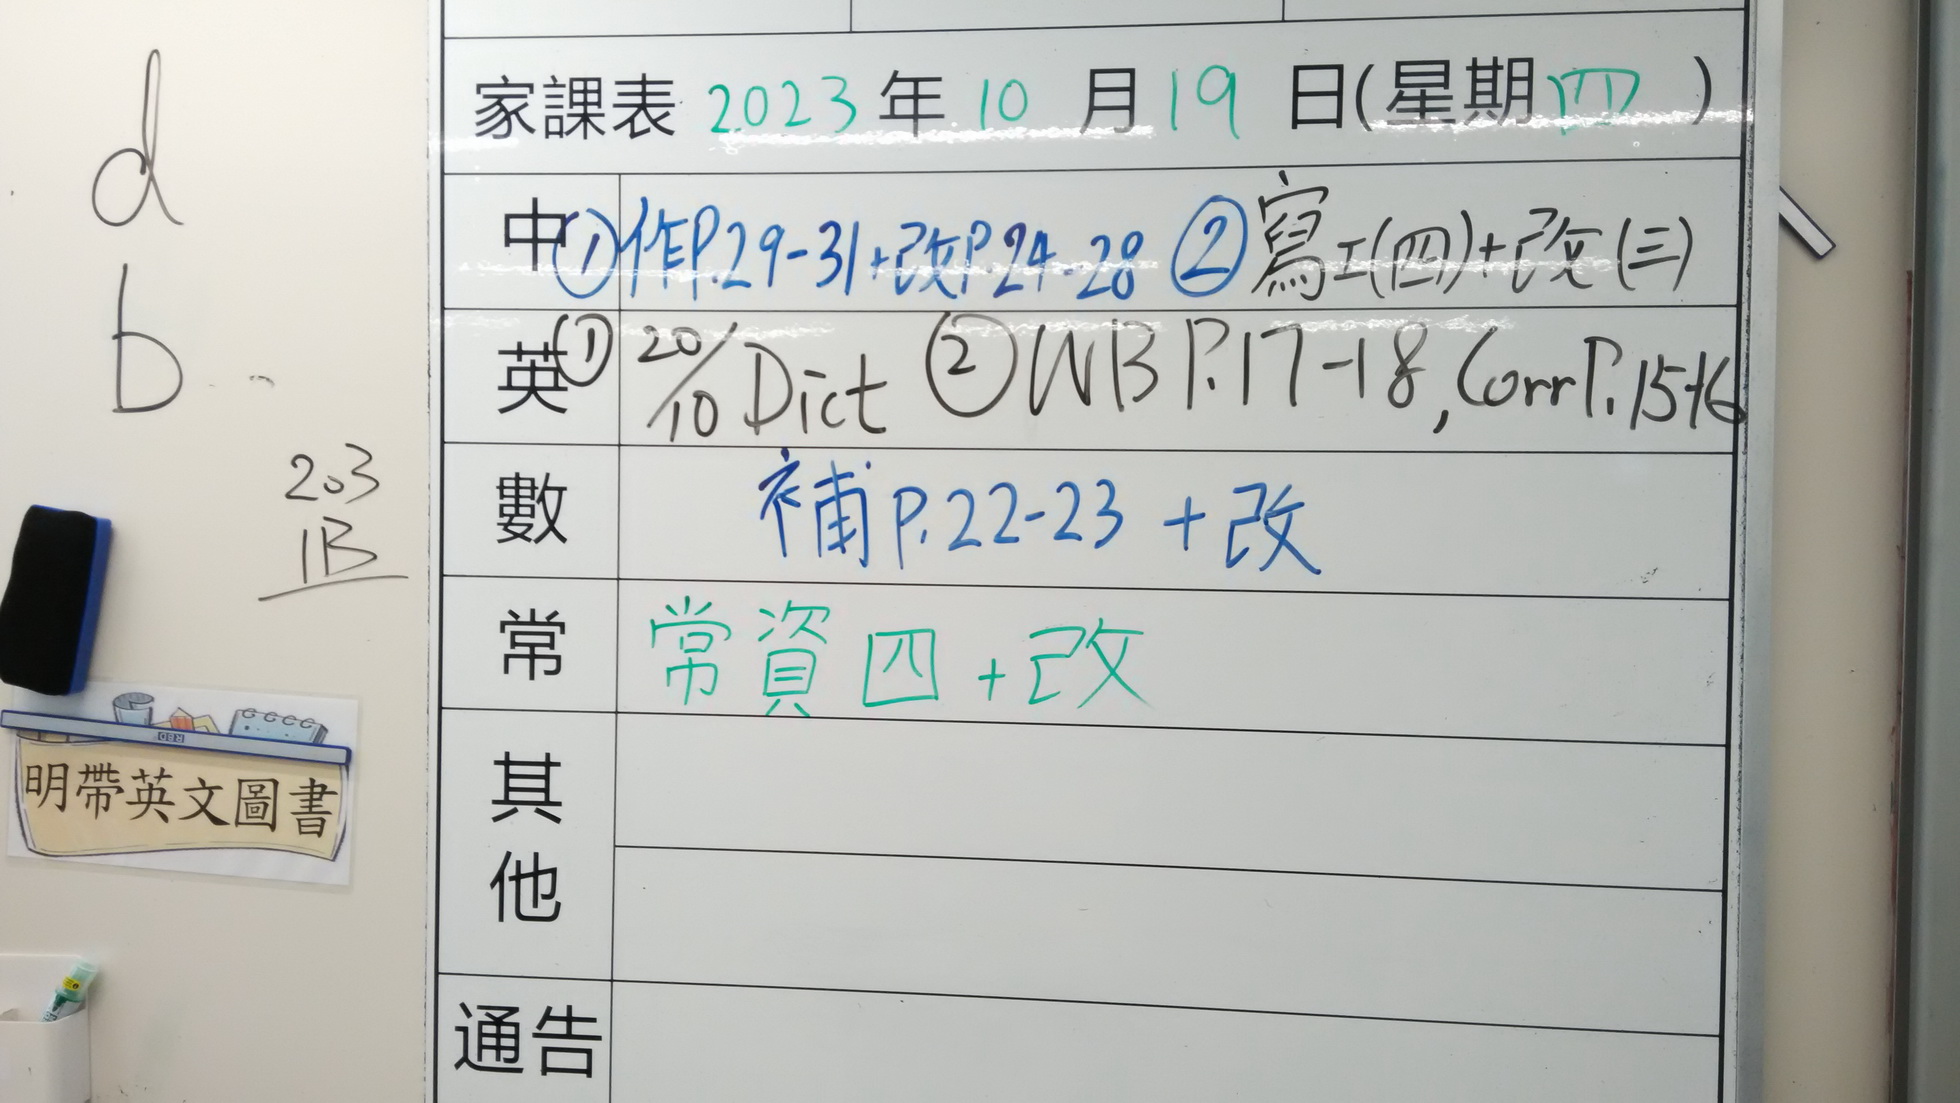 家課表 2023 年 10 月 19 日(星期四)
中 ①作P.29-31+改P.24-28 ②寫工(四)+改(三)
英 ① 20/10 Dict ② WB P.17-18, Corr P.15-16
數 補 P.22-23 + 改
常 常資四 + 改
其他
通告
d
b
203
1B
明帶英文圖書